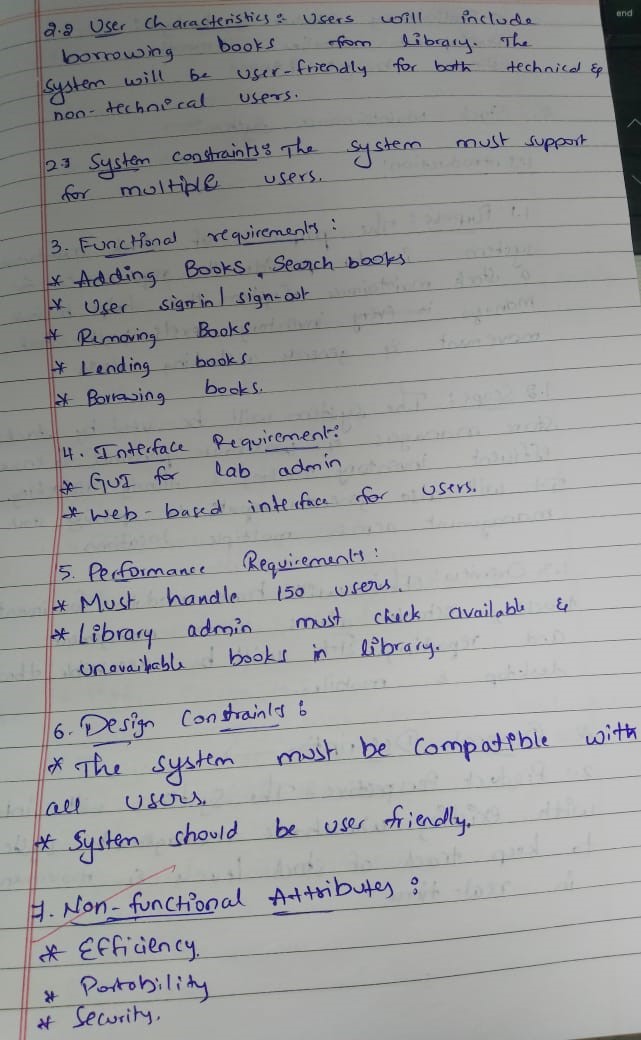 and
2.2 User Characteristics : Users will include
borrowing books from library. The
system will be user-friendly for both technical &
non-technical users.
2.3 System constraints : The system must support
for multiple users.
3. Functional requirements :
* Adding Books, Search books
* User sign in / sign-out
* Removing Books
* Lending books
* Borrowing books.
4. Interface Requirement:
* GUI for lab admin
* web-based interface for users.
5. Performance Requirements :
* Must handle 150 users.
* Library admin must check available &
unavailable books in library.
6. Design Constraints :
* The system must be compatible with
all users.
* System should be user friendly.
7. Non-functional Attributes :
* Efficiency.
* Portability
* Security.